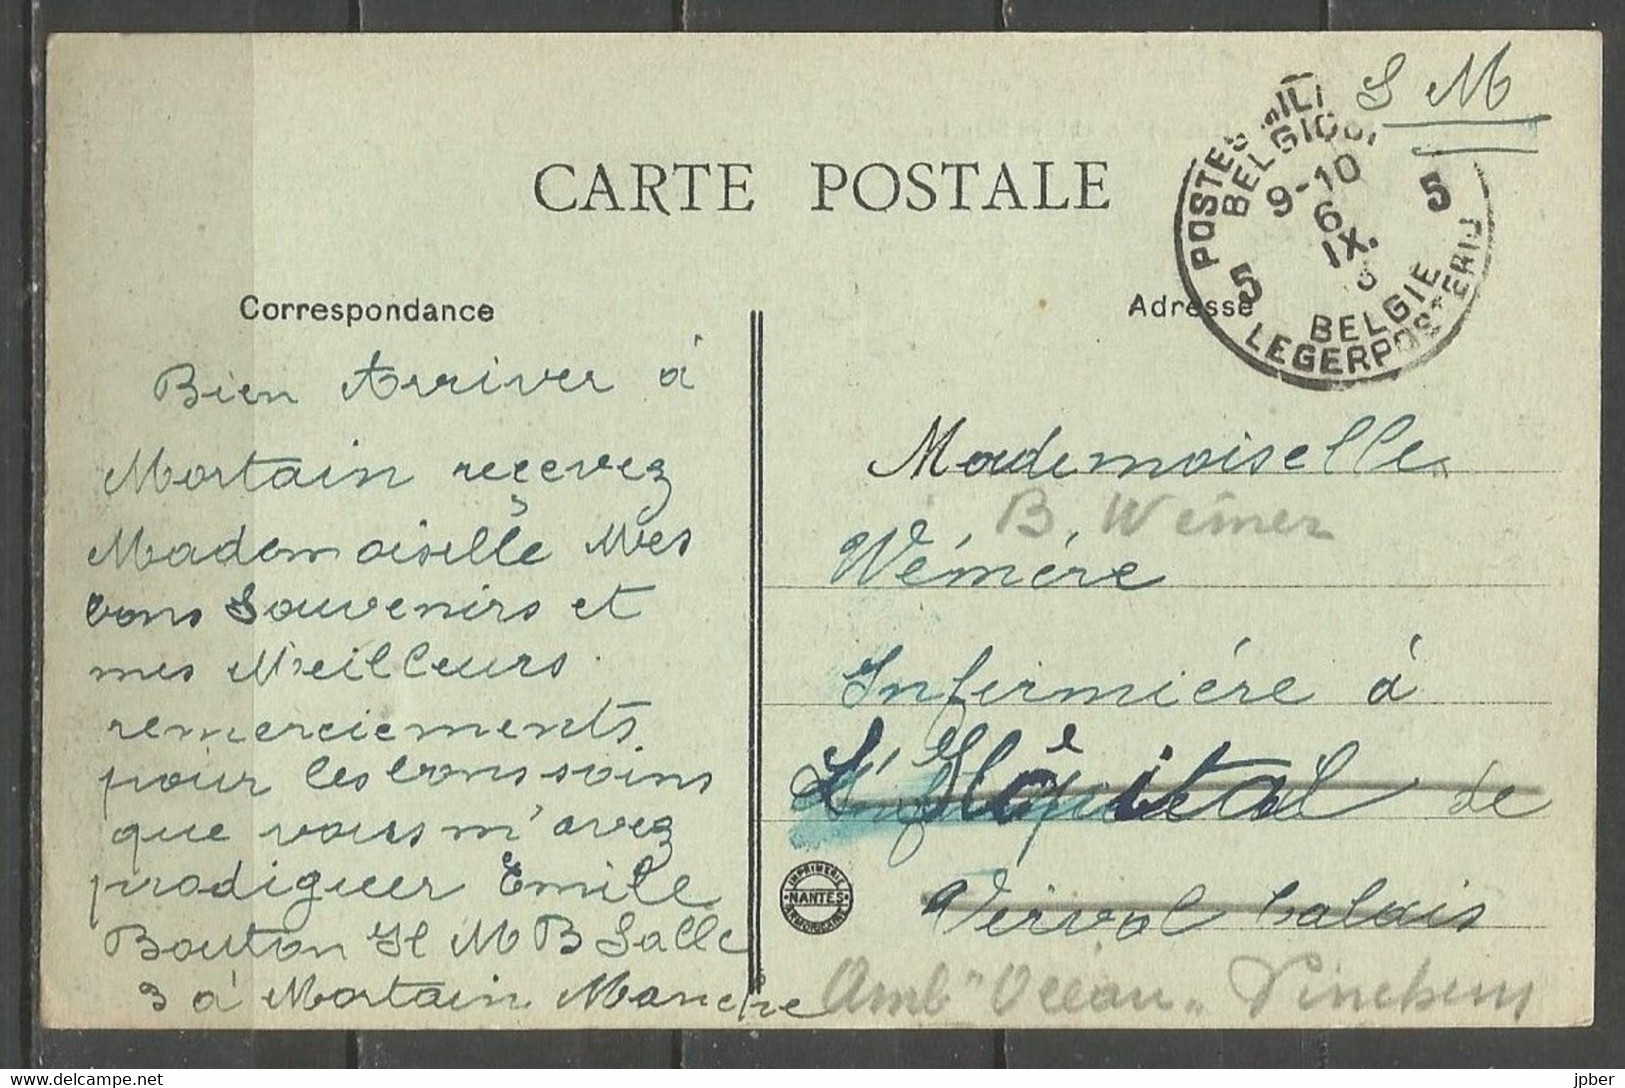 S M
CARTE POSTALE
POSTES MILI
BELGIQUE
9-10
6
IX.
5
5
BELGIE
LEGERPOSTERIJ
Correspondance
Adresse
Bien Arriver à
Mortain reçevez
Mademoiselle Mes
bons Souvenirs et
mes Meilleurs
remerciements
pour les bons soins
que vous m'avez
prodiguer Emile
Bouton Hl M B Salle
3 à Mortain Manche
Mademoiselle
B. Wémer
Wémére
Infirmiére à
L'Hôpital de
Vérvol Calais
Amb "Océan" Vinckem
IMPRIMERIE
NANTES
ARMORICAINE
jpber